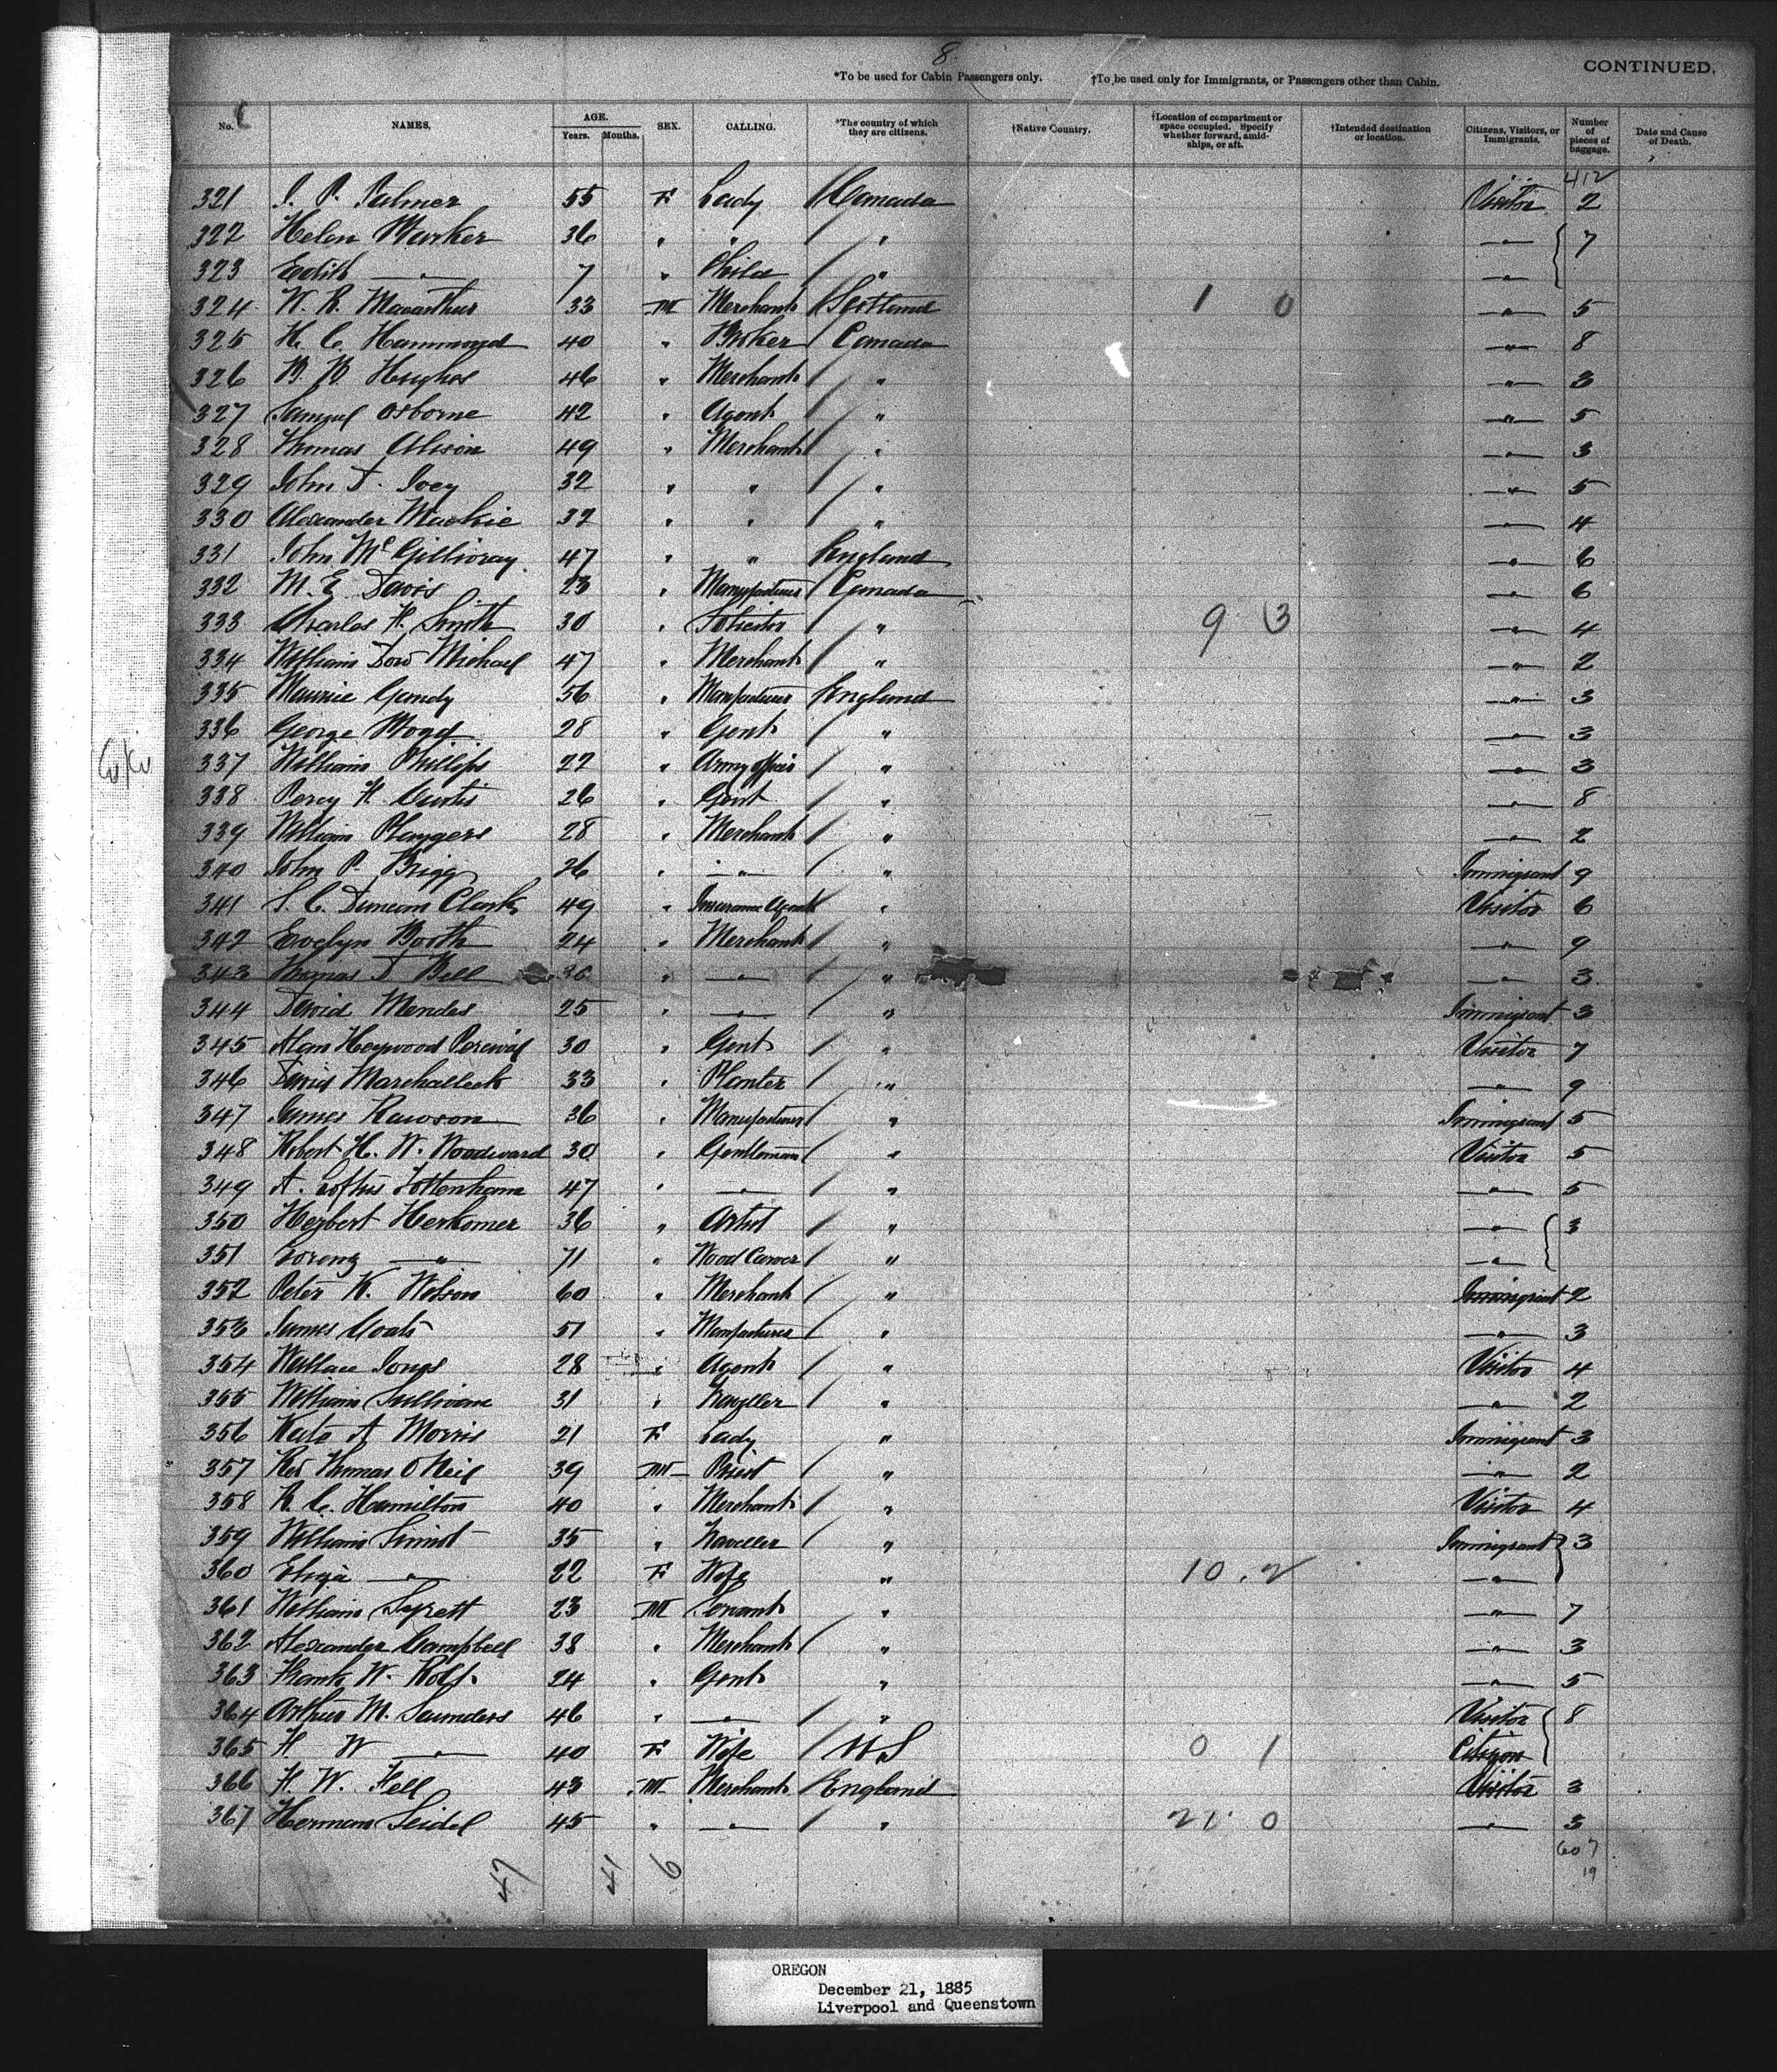 8
*To be used for Cabin Passengers only. †To be used only for Immigrants, or Passengers other than Cabin. CONTINUED.
No. NAMES. AGE. Years. Months. SEX. CALLING. *The country of which they are citizens. †Native Country. †Location of compartment or space occupied. Specify whether forward, amidships, or aft. †Intended destination or location. Citizens, Visitors, or Immigrants. Number of pieces of baggage. Date and Cause of Death.
412
321 P. Palmer 55 F Lady Canada Visitor 2
322 Helen Barker 36 " " " " 7
323 Edith " 7 " Child " "
324 W. R. Macarthur 33 M Merchant Scotland 1 0 " 5
325 H. C. Hammond 40 " Broker Canada " 8
326 B. B. Hughes 46 " Merchant " " 3
327 Samuel Osborne 42 " Agent " " 5
328 Thomas Alison 49 " Merchant " " 3
329 John T. Ivey 32 " " " " 5
330 Alexander Mackie 32 " " " " 4
331 John McGillivray 47 " " England " 6
332 M. E. Davis 23 " Manufacturer Canada " 6
333 Charles H. Smith 30 " Solicitor " 9 3 " 4
334 William Dow Michael 47 " Merchant " " 2
335 Maurice Gandy 56 " Manufacturer England " 3
336 George Wood 28 " Gent " " 3
337 William Phillips 22 " Army officer " " 3
338 Percy H. Curtis 26 " Gent " " 8
339 William Playgers 28 " Merchant " " 2
340 John P. Brigg 26 " " " Immigrant 9
341 S. C. Duncan Clark 49 " Insurance Agent " Visitor 6
342 Evelyn Booth 24 " Merchant " " 9
343 Thomas T Bell 30 " " " " 3
344 David Mendes 25 " " " Immigrant 3
345 Alan Heywood Percival 30 " Gent " Visitor 7
346 David Marchalleck 33 " Planter " " 9
347 James Rawson 36 " Manufacturer " Immigrant 5
348 Robert H. W. Woodward 30 " Gentleman " Visitor 5
349 A. Loftus Tottenham 47 " " " " 5
350 Herbert Herkomer 36 " Artist " " 3
351 Lorenz " 71 " Wood Carver " "
352 Peter K. Wilson 60 " Merchant " Immigrant 2
353 James Coats 51 " Manufacturer " " 3
354 Wallace Jones 28 " Agent " Visitor 4
355 William Sullivan 31 " Traveller " " 2
356 Kate A Morris 21 F Lady " Immigrant 3
357 Rev Thomas O'Neil 39 M Priest " " 2
358 R. C. Hamilton 40 " Merchant " Visitor 4
359 William Simist 35 " Traveller " Immigrant 3
360 Eliza " 22 F Wife " 10 2 "
361 William Syrett 23 M Servant " " 7
362 Alexander Campbell 38 " Merchant " " 3
363 Frank W. Rolt 24 " Gent " " 5
364 Arthur M. Saunders 46 " " " Visitor 8
365 H W " 40 F Wife U S 0 1 Citizen
366 H. W. Fell 43 M Merchant England Visitor 3
367 Herman Seidel 45 " " " 21 0 " 3
607
19
47 41 6
OREGON
December 21, 1885
Liverpool and Queenstown